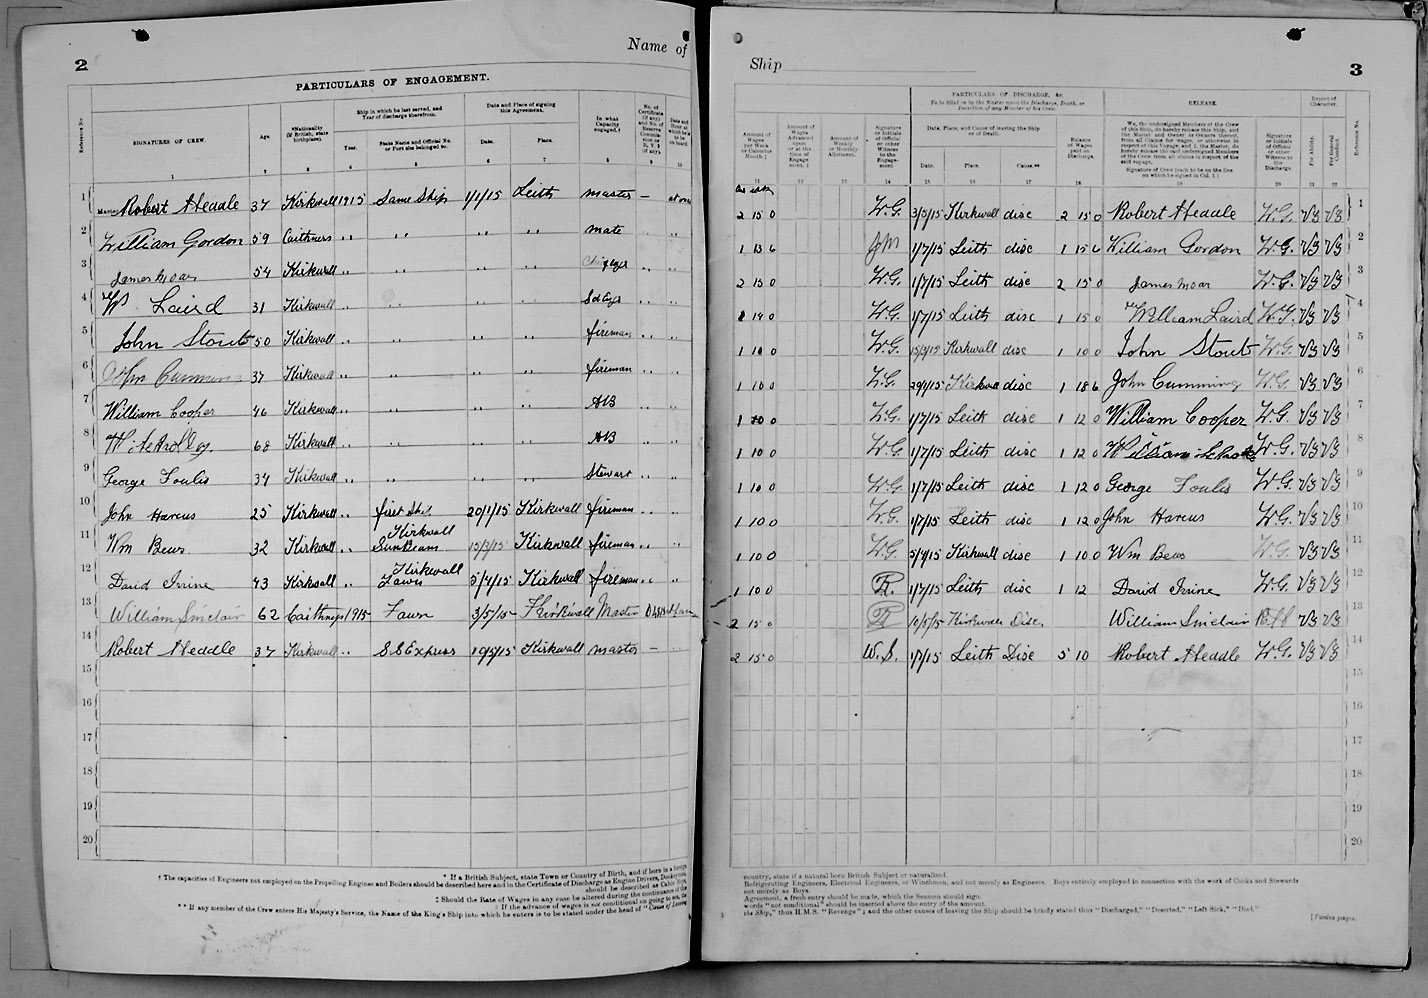 2
Name of
PARTICULARS OF ENGAGEMENT.
Reference No.
SIGNATURES OF CREW.
Age.
*Nationality (If British, state birthplace).
Ship in which he last served, and Year of discharge therefrom.
Year.
State Name and Official No. or Port she belonged to.
Date and Place of signing this Agreement.
Date.
Place.
In what Capacity engaged.†
No. of Certificate (if any)
1 Master Robert Heddle 37 Kirkwall 1915 Same Ship 1/1/15 Leith master —
2 William Gordon 59 Caithness " " " " mate " "
3 James Moar 54 Kirkwall " " " " " "
4 Wm Laird 31 Kirkwall " " " " " "
5 John Stout 50 Kirkwall " " " " fireman " "
6 John Cumming 37 Kirkwall " " " " fireman " "
7 William Cooper 46 Kirkwall " " " " AB " "
8 68 Kirkwall " " " " AB " "
9 George Foulis 34 Kirkwall " " " " Stewart " "
10 John Harcus 25 Kirkwall " first Ship 20/1/15 Kirkwall fireman " "
11 Wm Bews 32 Kirkwall " Kirkwall SunBeam Kirkwall fireman " "
12 David Irvine 43 Kirkwall " Kirkwall Fawn 5/4/15 Kirkwall fireman " "
13 William Sinclair 62 Caithness 1915 Fawn 3/5/15 Kirkwall Master
14 Robert Heddle 37 Kirkwall " S S Express Kirkwall master —
15
16
17
18
19
20
* If a British Subject, state Town or Country of Birth, and if born in a foreign
† The capacities of Engineers not employed on the Propelling Engines and Boilers should be described here and in the Certificate of Discharge as Engine Drivers,
should be described as Cabin Boys.
‡ Should the Rate of Wages in any case be altered during the continuance of the
‖ If the advance of wages is not conditional on going to sea, the
** If any member of the Crew enters His Majesty's Service, the Name of the King's Ship into which he enters is to be stated under the head of "Cause of Leaving
Ship
3
PARTICULARS OF DISCHARGE, &c.
To be filled in by the Master upon the Discharge, Death, or Desertion of any Member of his Crew.
RELEASE.
Report of Character.
Amount of Wages per Week or Calendar Month ‡
Amount of Wages Advanced upon or at the time of Engagement.
Amount of Weekly or Monthly Allotment.
Signature or Initials of Official or other Witness to the Engagement
Date, Place, and Cause of leaving the Ship or of Death.
Date.
Place.
Cause.**
Balance of Wages paid on Discharge.
We, the undersigned Members of the Crew of this Ship, do hereby release this Ship, and the Master and Owner or Owners thereof, from all Claims for Wages, or otherwise in respect of this Voyage, and I, the Master, do hereby release the said undersigned Members of the Crew from all claims in respect of the said voyage.
Signature of Crew (each to be on the line on which he signed in Col. 1.)
Signature or Initials of Official or other Witness to the Discharge.
For Ability.
For General Conduct.
Reference No.
2 15 0 W.G. 3/5/15 Kirkwall disc 2 15 0 Robert Heddle W.G. VG VG 1
1 13 6 1/7/15 Leith disc 1 15 6 William Gordon W.G. VG VG 2
2 15 0 W.G. 1/7/15 Leith disc 2 15 0 James Moar W.G. VG VG 3
14 0 W.G. 1/7/15 Leith disc 1 15 0 William Laird W.G. VG VG 4
1 10 0 W.G. Kirkwall disc 1 10 0 John Stout W.G. VG VG 5
1 10 0 W.G. Kirkwall disc 1 18 6 John Cumming W.G. VG VG 6
1 10 0 W.G. 1/7/15 Leith disc 1 12 0 William Cooper W.G. VG VG 7
1 10 0 W.G. 1/7/15 Leith disc 1 12 0 William W.G. VG VG 8
1 10 0 W.G. 1/7/15 Leith disc 1 12 0 George Foulis W.G. VG VG 9
1 10 0 W.G. 1/7/15 Leith disc 1 12 0 John Harcus W.G. VG VG 10
1 10 0 W.G. 5/4/15 Kirkwall disc 1 10 0 Wm Bews W.G. VG VG 11
1 10 0 1/7/15 Leith disc 1 12 David Irvine W.G. VG VG 12
2 15 0 10/5/15 Kirkwall Disc. William Sinclair VG VG 13
2 15 0 W.S. 1/7/15 Leith Disc 5 10 Robert Heddle W.G. VG VG 14
15
16
17
18
19
20
country, state if a natural born British Subject or naturalized.
Refrigerating Engineers, Electrical Engineers, or Winchmen, and not merely as Engineers. Boys entirely employed in connection with the work of Cooks and Stewards
not merely as Boys.
Agreement, a fresh entry should be made, which the Seamen should sign.
words "not conditional" should be inserted above the entry of the amount.
the Ship," thus H.M.S. "Revenge"; and the other causes of leaving the Ship should be briefly stated thus "Discharged," "Deserted," "Left Sick," "Died."
[Twelve pages.